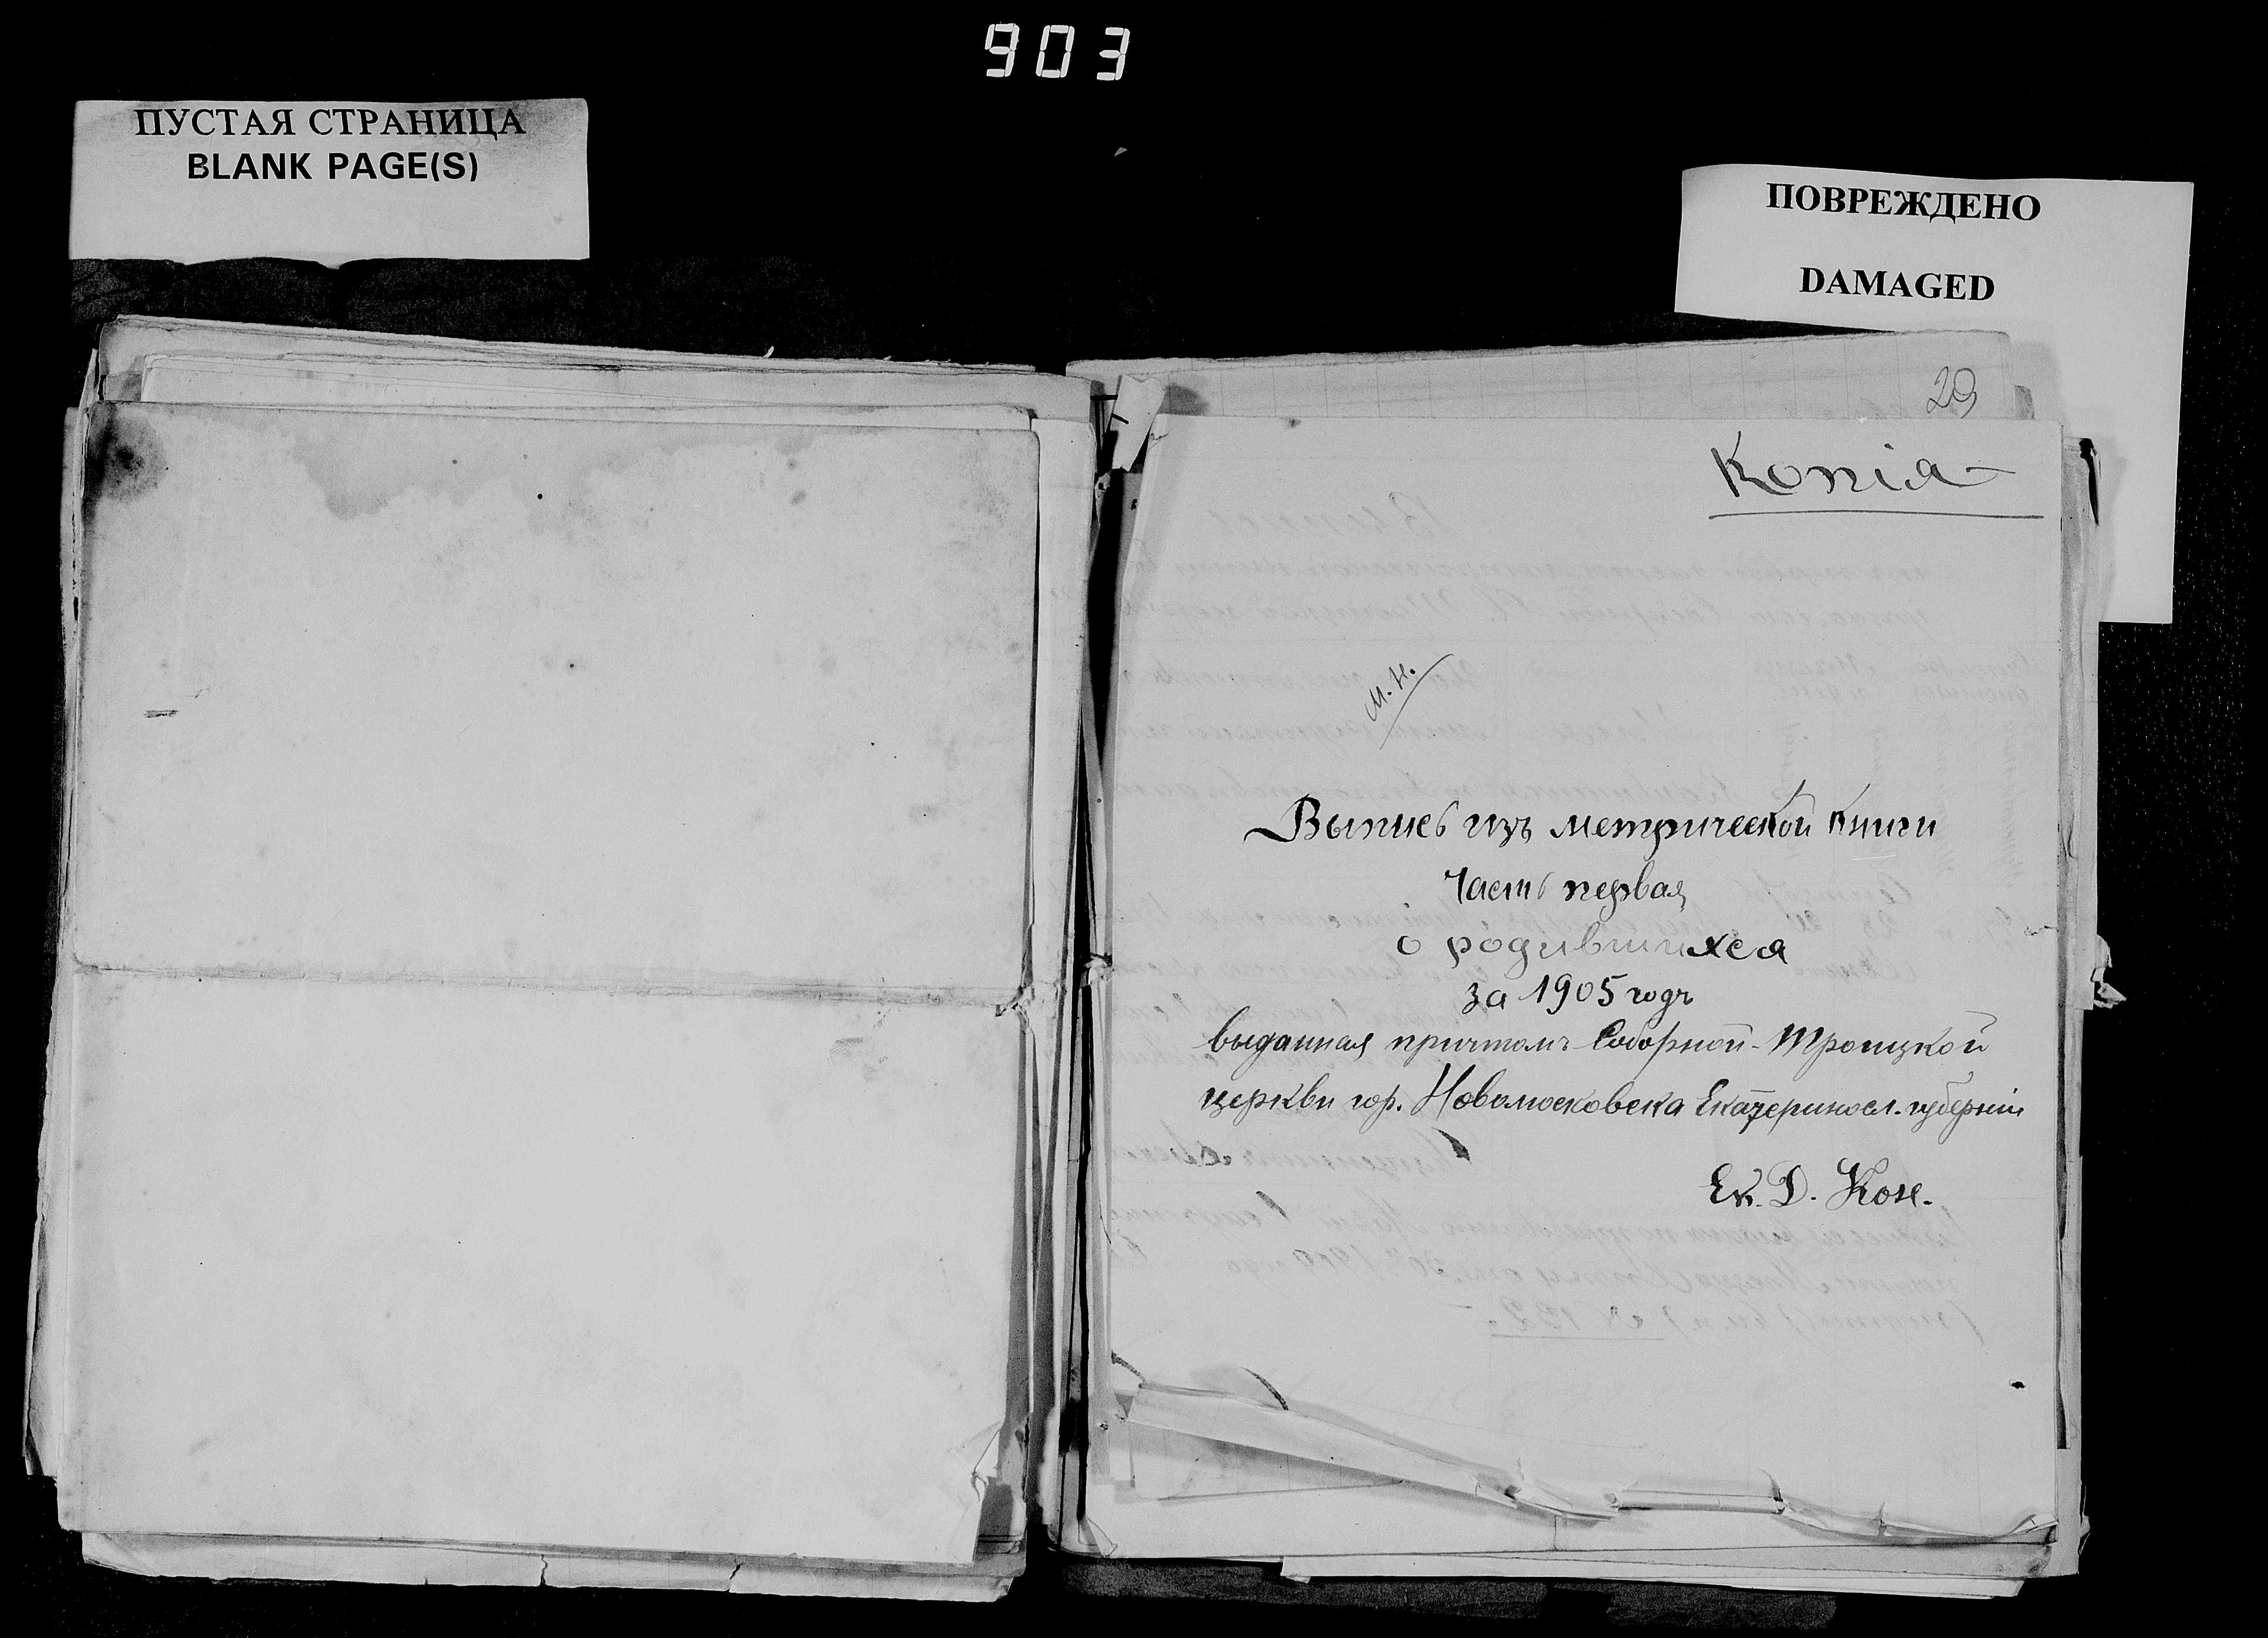 903
ПУСТАЯ СТРАНИЦА
BLANK PAGE(S)
ПОВРЕЖДЕНО
DAMAGED
29
Копія
М. К.
Выпись изъ метрической книги
Часть первая
о родившихся
за 1905 годъ
выданная причтомъ Соборной-Троицкой
церкви гор. Новомосковска Екатеринosл. губерніи
Ек. Д. Кон.